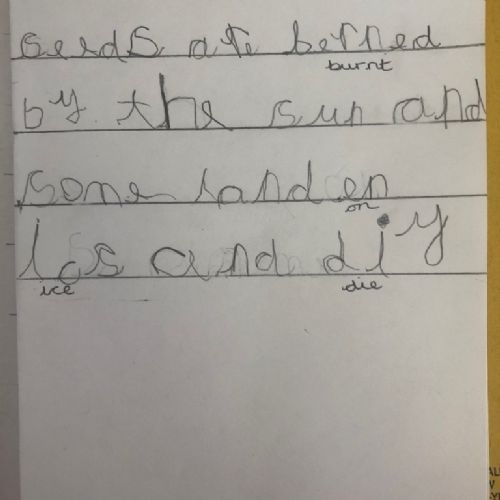 seeds are berned
burnt
by the sun and
some land en
on
Ios and diy
ice die